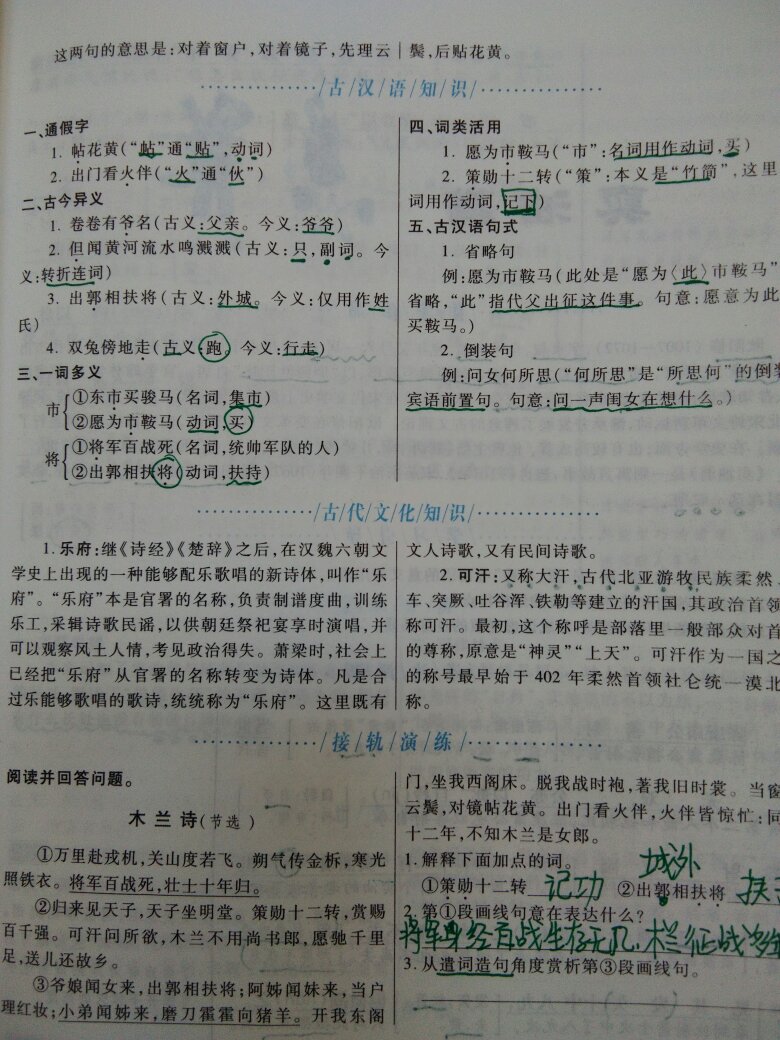 这两句的意思是:对着窗户,对着镜子,先理云
鬓,后贴花黄。
古/汉/语/知/识
一、通假字
1. 帖花黄(“帖”通“贴”,动词)
2. 出门看火伴(“火”通“伙”)
二、古今异义
1. 卷卷有爷名(古义:父亲。今义:爷爷)
2. 但闻黄河流水鸣溅溅(古义:只,副词。今
义:转折连词)
3. 出郭相扶将(古义:外城。今义:仅用作姓
氏)
4. 双兔傍地走(古义:跑。今义:行走)
三、一词多义
市
①东市买骏马(名词,集市)
②愿为市鞍马(动词,买)
将
①将军百战死(名词,统帅军队的人)
②出郭相扶将(动词,扶持)
四、词类活用
1. 愿为市鞍马(“市”:名词用作动词,买)
2. 策勋十二转(“策”:本义是“竹简”,这里
词用作动词,记下)
五、古汉语句式
1. 省略句
例:愿为市鞍马(此处是“愿为〈此〉市鞍马”
省略,“此”指代父出征这件事。句意:愿意为此
买鞍马。)
2. 倒装句
例:问女何所思(“何所思”是“所思何”的倒装
宾语前置句。句意:问一声闺女在想什么。)
古/代/文/化/知/识
1. 乐府:继《诗经》《楚辞》之后,在汉魏六朝文
学史上出现的一种能够配乐歌唱的新诗体,叫作“乐
府”。“乐府”本是官署的名称,负责制谱度曲,训练
乐工,采辑诗歌民谣,以供朝廷祭祀宴享时演唱,并
可以观察风土人情,考见政治得失。萧梁时,社会上
已经把“乐府”从官署的名称转变为诗体。凡是合
过乐能够歌唱的歌诗,统统称为“乐府”。这里既有
文人诗歌,又有民间诗歌。
2. 可汗:又称大汗,古代北亚游牧民族柔然、
车、突厥、吐谷浑、铁勒等建立的汗国,其政治首领
称可汗。最初,这个称呼是部落里一般部众对首
的尊称,原意是“神灵”“上天”。可汗作为一国之
的称号最早始于 402 年柔然首领社仑统一漠北
称。
接/轨/演/练
阅读并回答问题。
木兰诗(节选)
①万里赴戎机,关山度若飞。朔气传金柝,寒光
照铁衣。将军百战死,壮士十年归。
②归来见天子,天子坐明堂。策勋十二转,赏赐
百千强。可汗问所欲,木兰不用尚书郎,愿驰千里
足,送儿还故乡。
③爷娘闻女来,出郭相扶将;阿姊闻妹来,当户
理红妆;小弟闻姊来,磨刀霍霍向猪羊。开我东阁
门,坐我西阁床。脱我战时袍,著我旧时裳。当窗
云鬓,对镜帖花黄。出门看火伴,火伴皆惊忙:同
十二年,不知木兰是女郎。
1. 解释下面加点的词。
城外
①策勋十二转 记功 ②出郭相扶将 扶
2. 第①段画线句意在表达什么?
将军身经百战生存无几,木兰征战
3. 从遣词造句角度赏析第③段画线句。